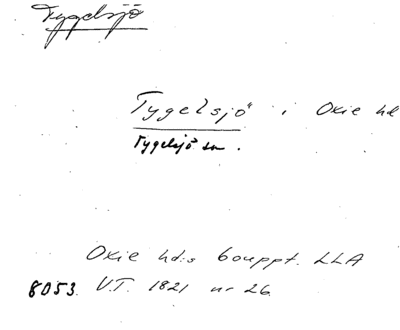 Tygelsjö
Tygelsjö i Oxie hd
Tygelsjö sn.
Oxie hd:s bouppt. LLA
8053. V.T. 1821 nr 26.